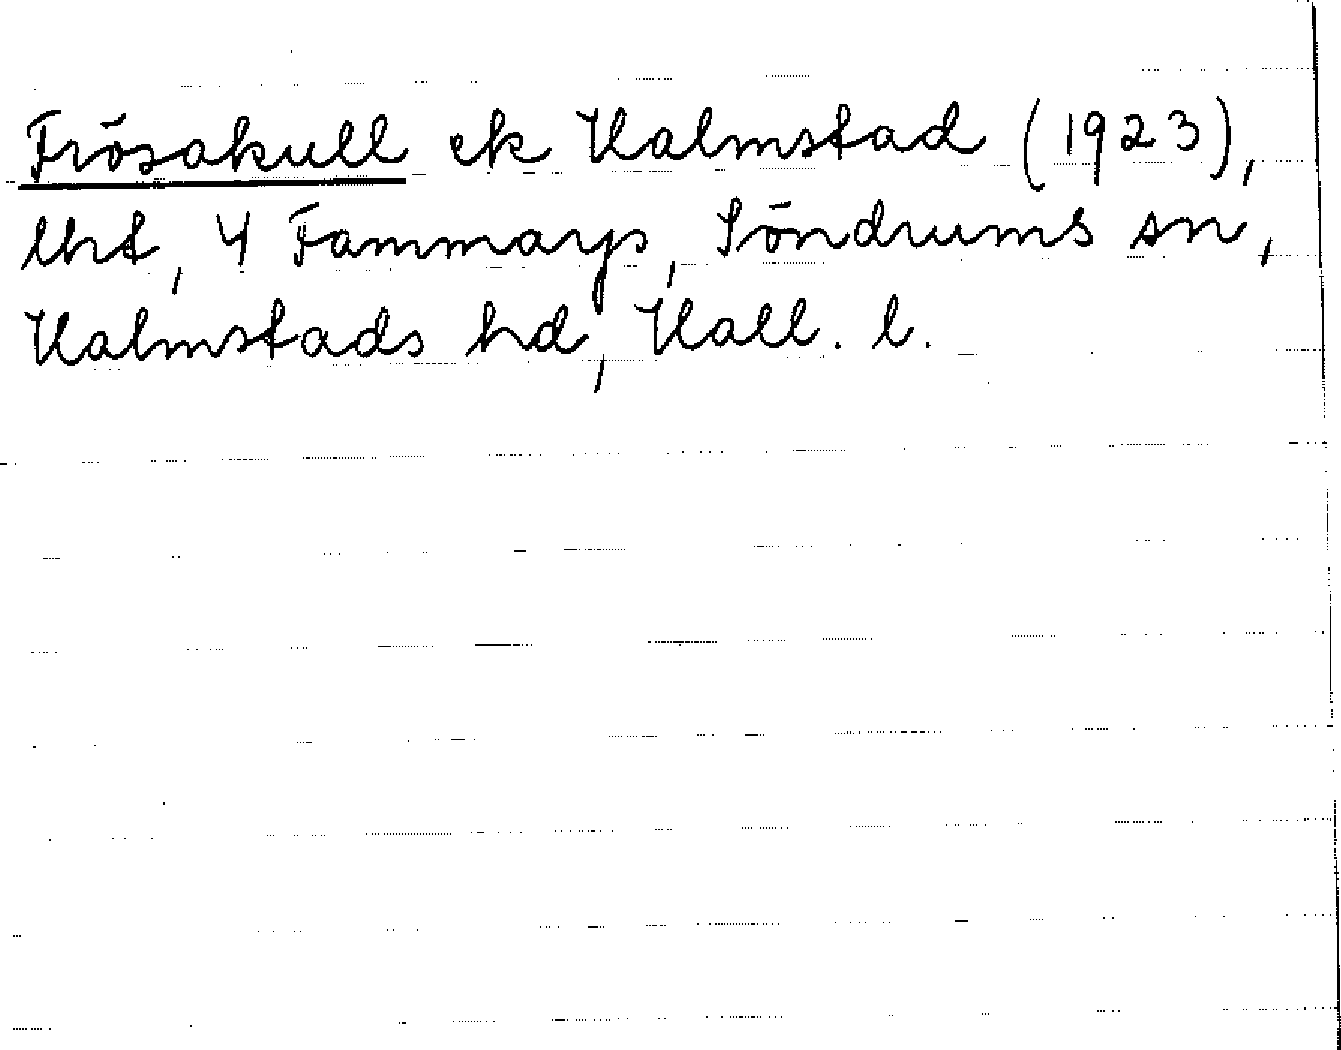 Frösakull ek Halmstad (1923),
lht, 4 Fammarp, Söndrums sn,
Halmstads hd, Hall. l.